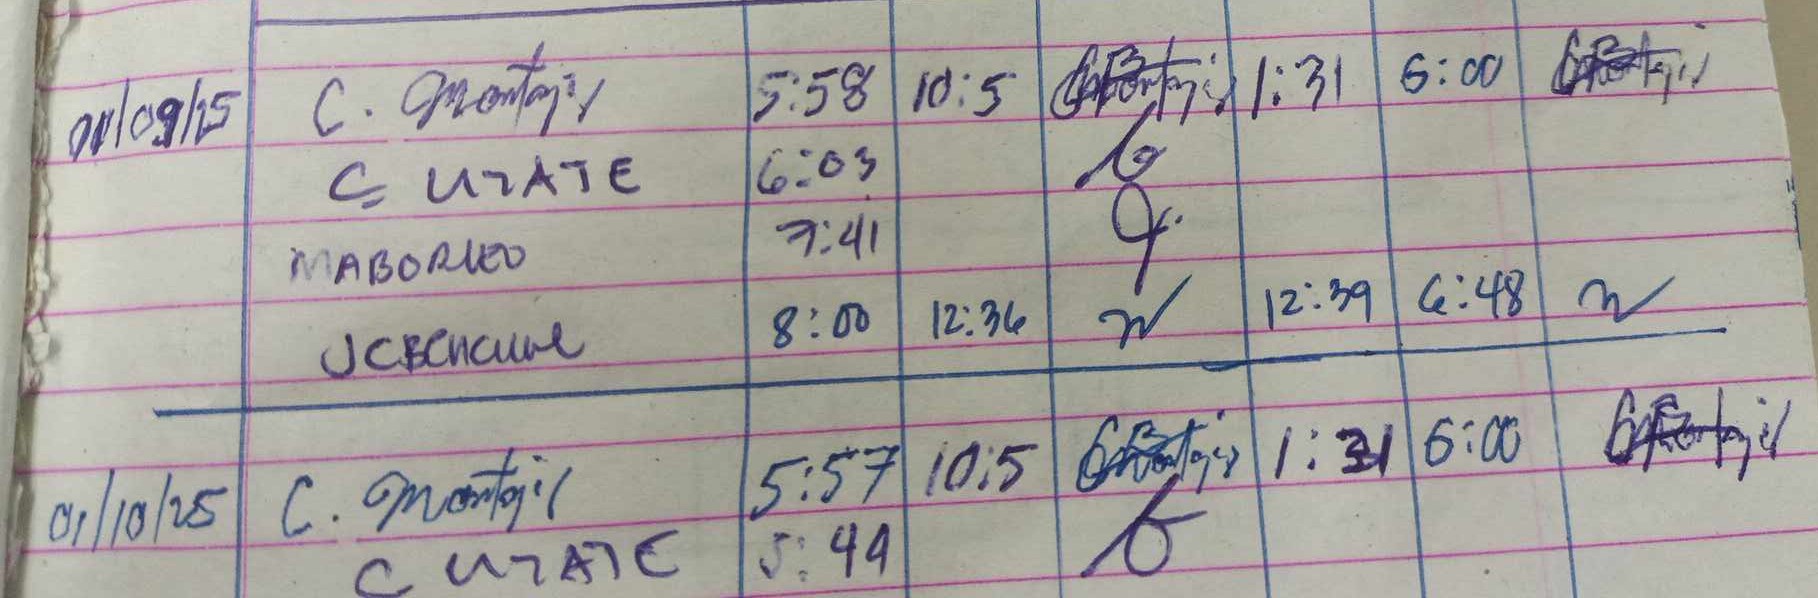 01/09/25 C. Montajil 5:58 10:5 1:31 6:00
C UZATE 6:03
MABORLEO 7:41
8:00 12:36 12:39 6:48
01/10/25 C. Montajil 5:57 10:5 1:31 6:00
C UZATE 5:44